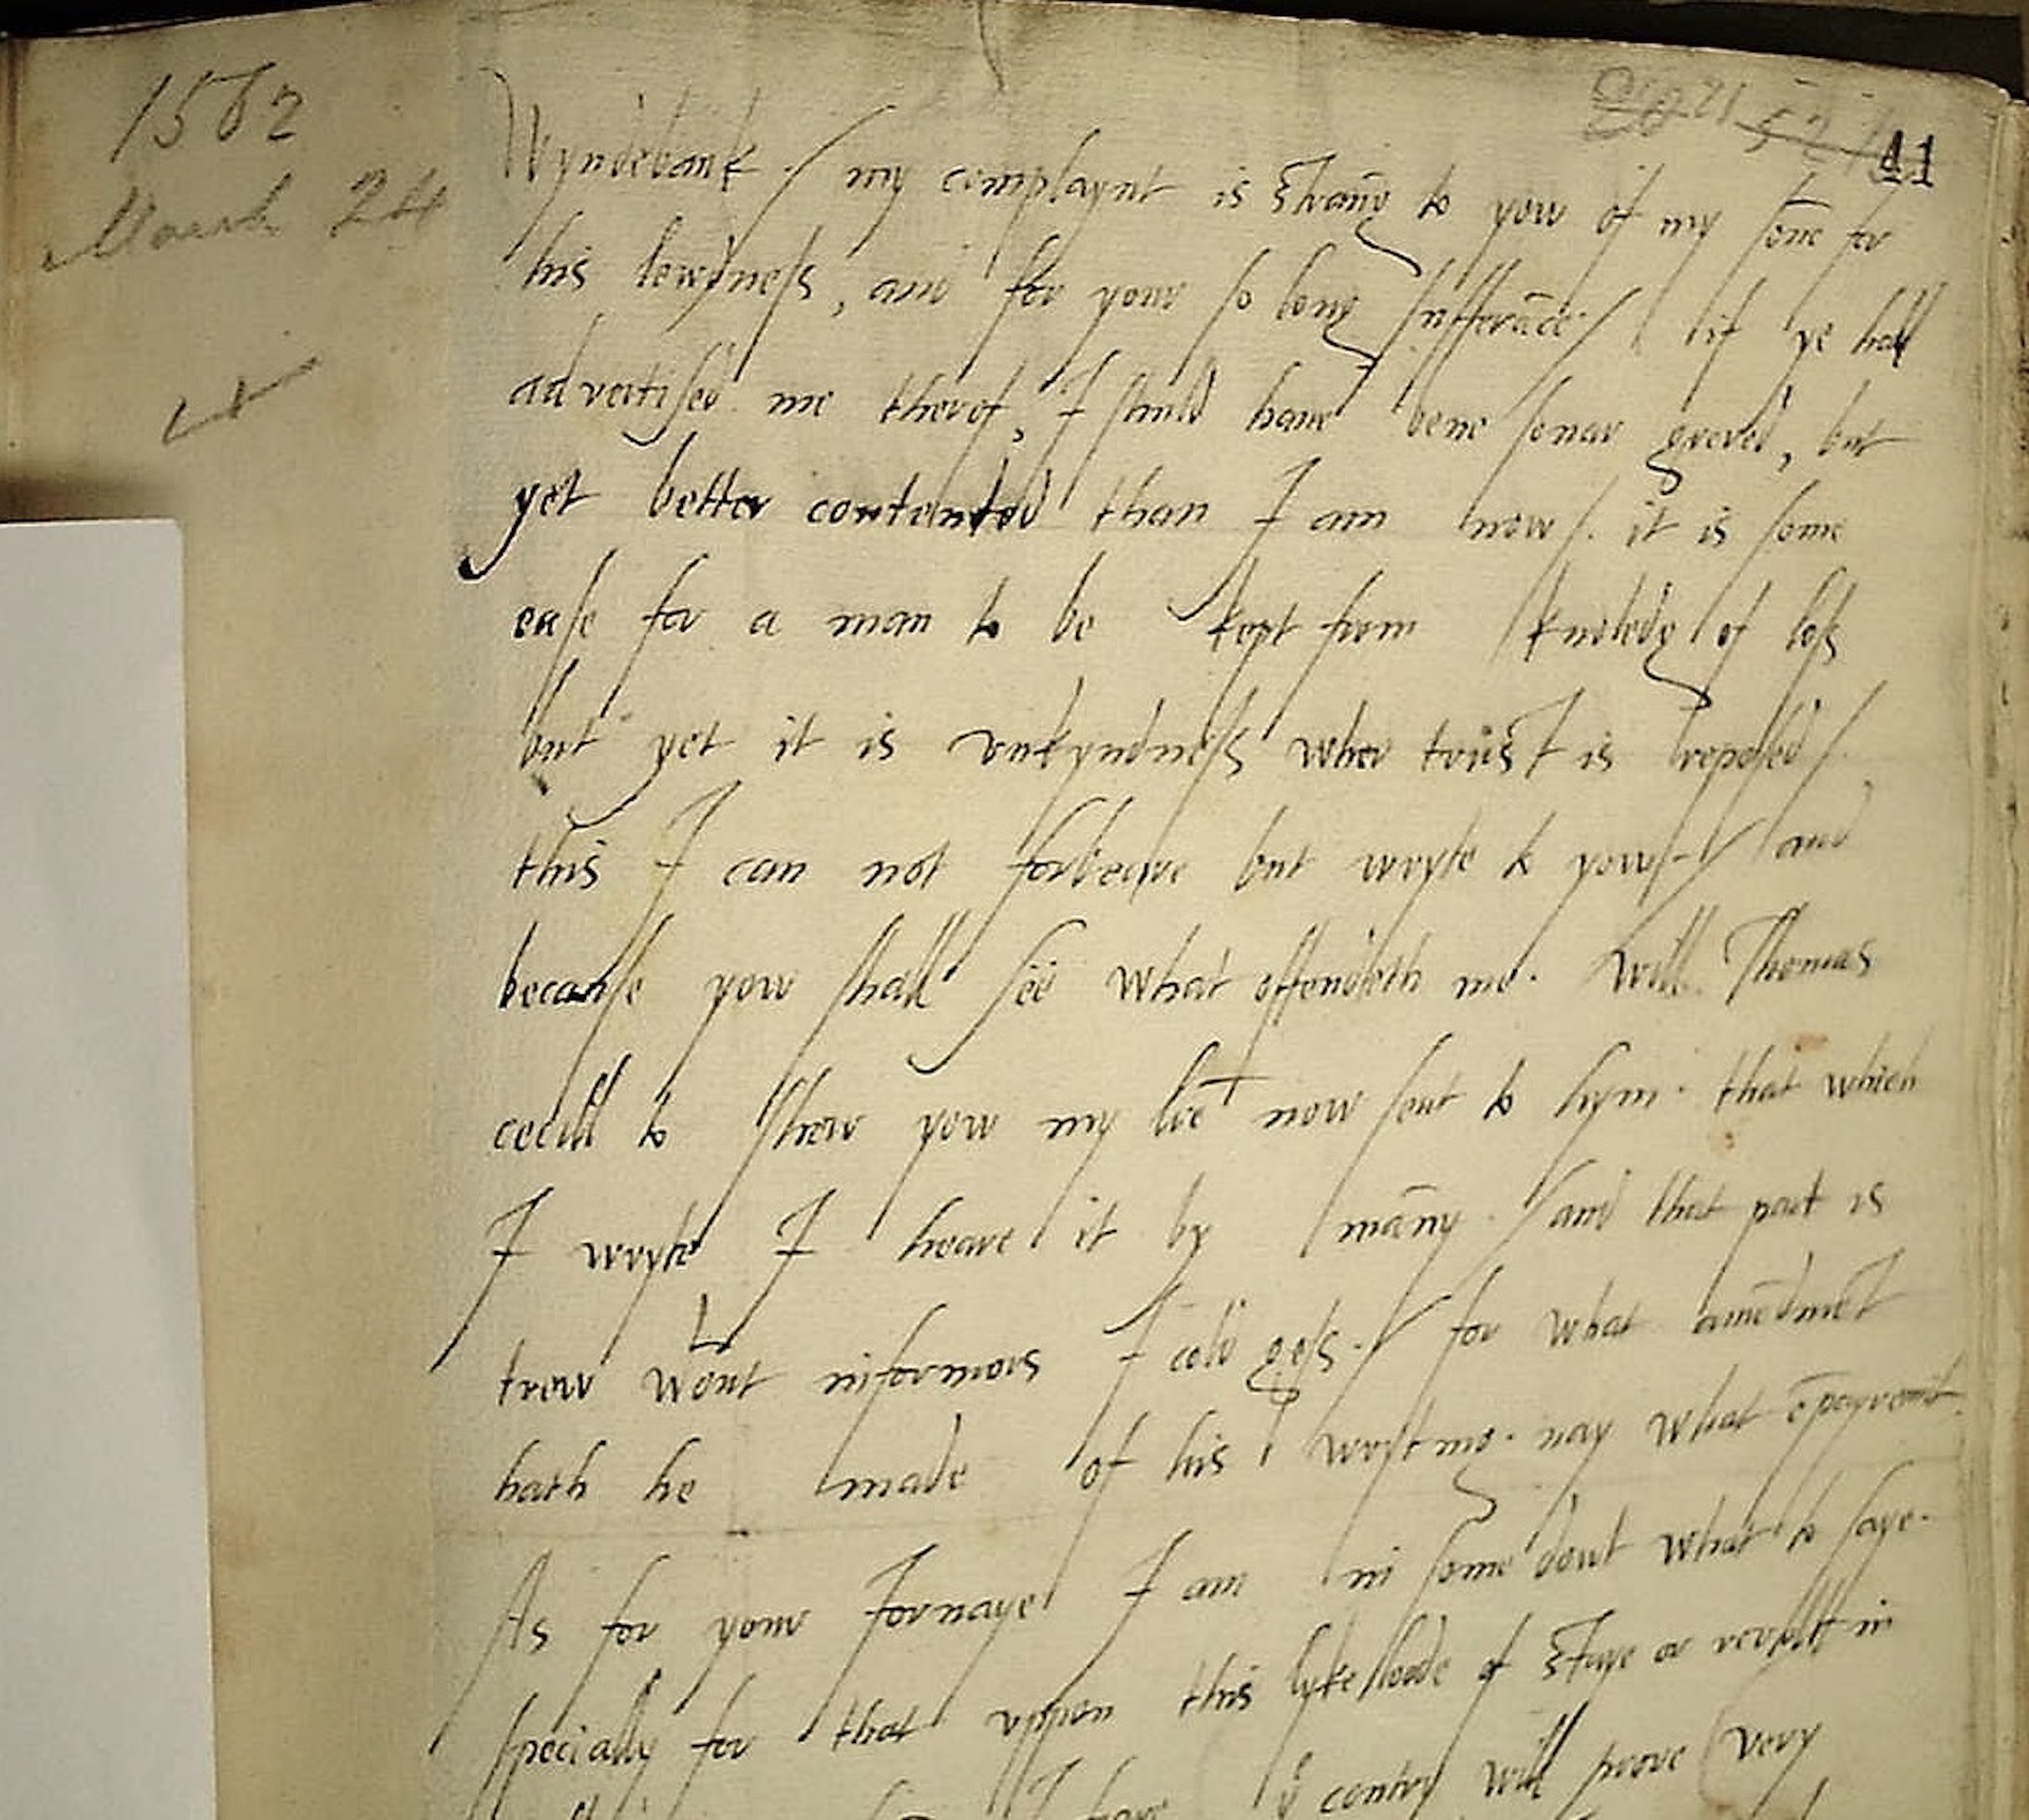 1562
March 24
41
Wyndebank. / my complaynt is strang to yow of my sone for
his lewdness, and for your so long sufferāce / if ye had
advertised me therof, I shuld have bene sonar greved, but
yet better contented than I am now /. it is some
ease for a man to be kept from knoledg of loss
but yet it is unkyndness wher trust is reposed /.
this I can not forbeare but wryte to yow / and
because yow shall see what offendeth me. will Thomas
cecill to shew yow my lr̄e now sent to hym. that which
I wryte I heare it by māny. / and that part is
trew wout informors I cold gess. / for what amēdmēt
hath he made of his wrytīng. nay what
As for your Jornaye I am in some dout what to saye.
specially for that uppon this lykelloode of sturr or revollt in
contry will prove very